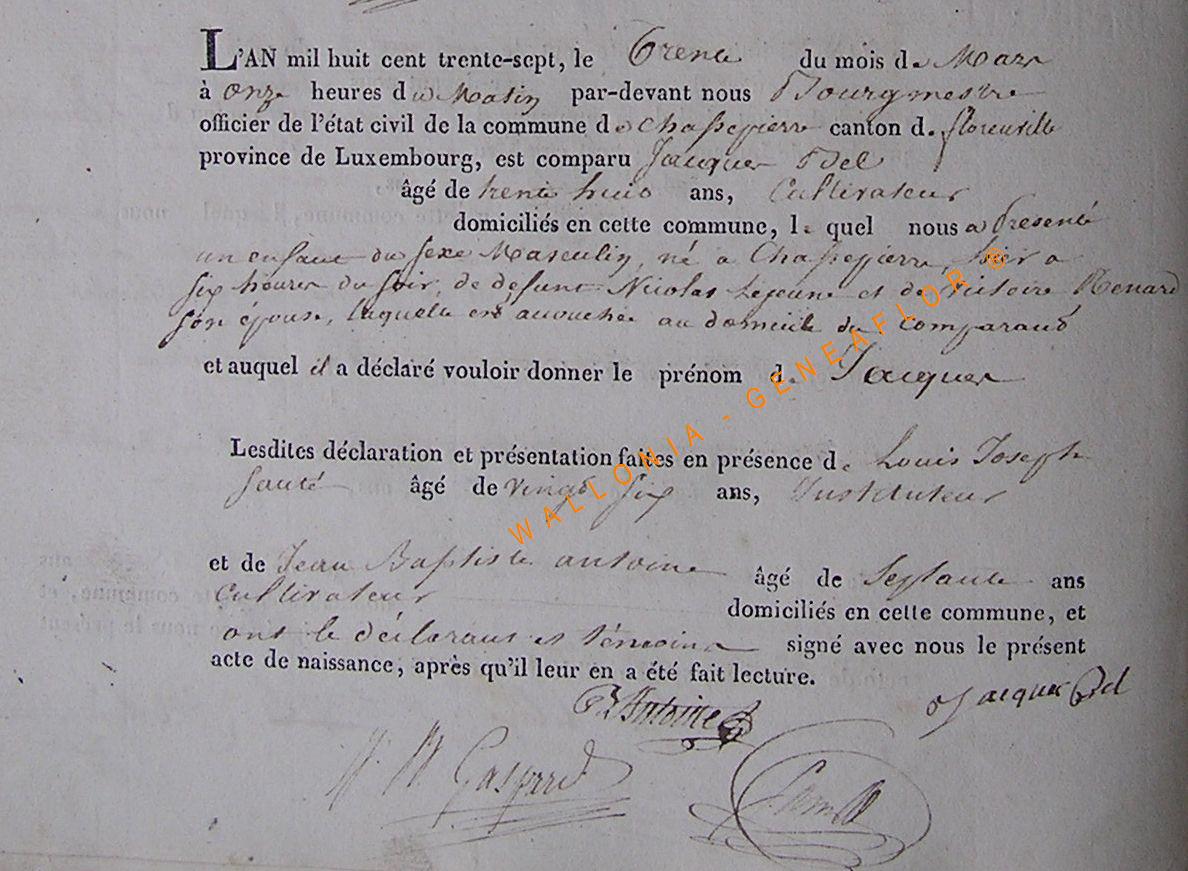 L'AN mil huit cent trente-sept, le Trente du mois de Mars
à onze heures du Matin par-devant nous Bourgmestre
officier de l'état civil de la commune de Chassepierre canton d. florenville
province de Luxembourg, est comparu Jacques
âgé de trente huit ans, Cultivateur
domiciliés en cette commune, le quel nous a Presenté
un enfant du sexe Masculin, né a Chassepierre, hier a
six heures du soir, de defunt Nicolas Lejeune et de Victoire Renard
son épouse, laquelle est accouchée au domicile du Comparant
et auquel il a déclaré vouloir donner le prénom de Jacques
Lesdites déclaration et présentation faites en présence de Louis Joseph
Santé âgé de vingt six ans, Instituteur
et de Jean Baptiste antoine âgé de Septante ans
Cultivateur
domiciliés en cette commune, et
ont le déclarant et témoins signé avec nous le présent
acte de naissance, après qu'il leur en a été fait lecture.
Antoine Jacques
Gaspard
WALLONIA - GENEAFLOR ®